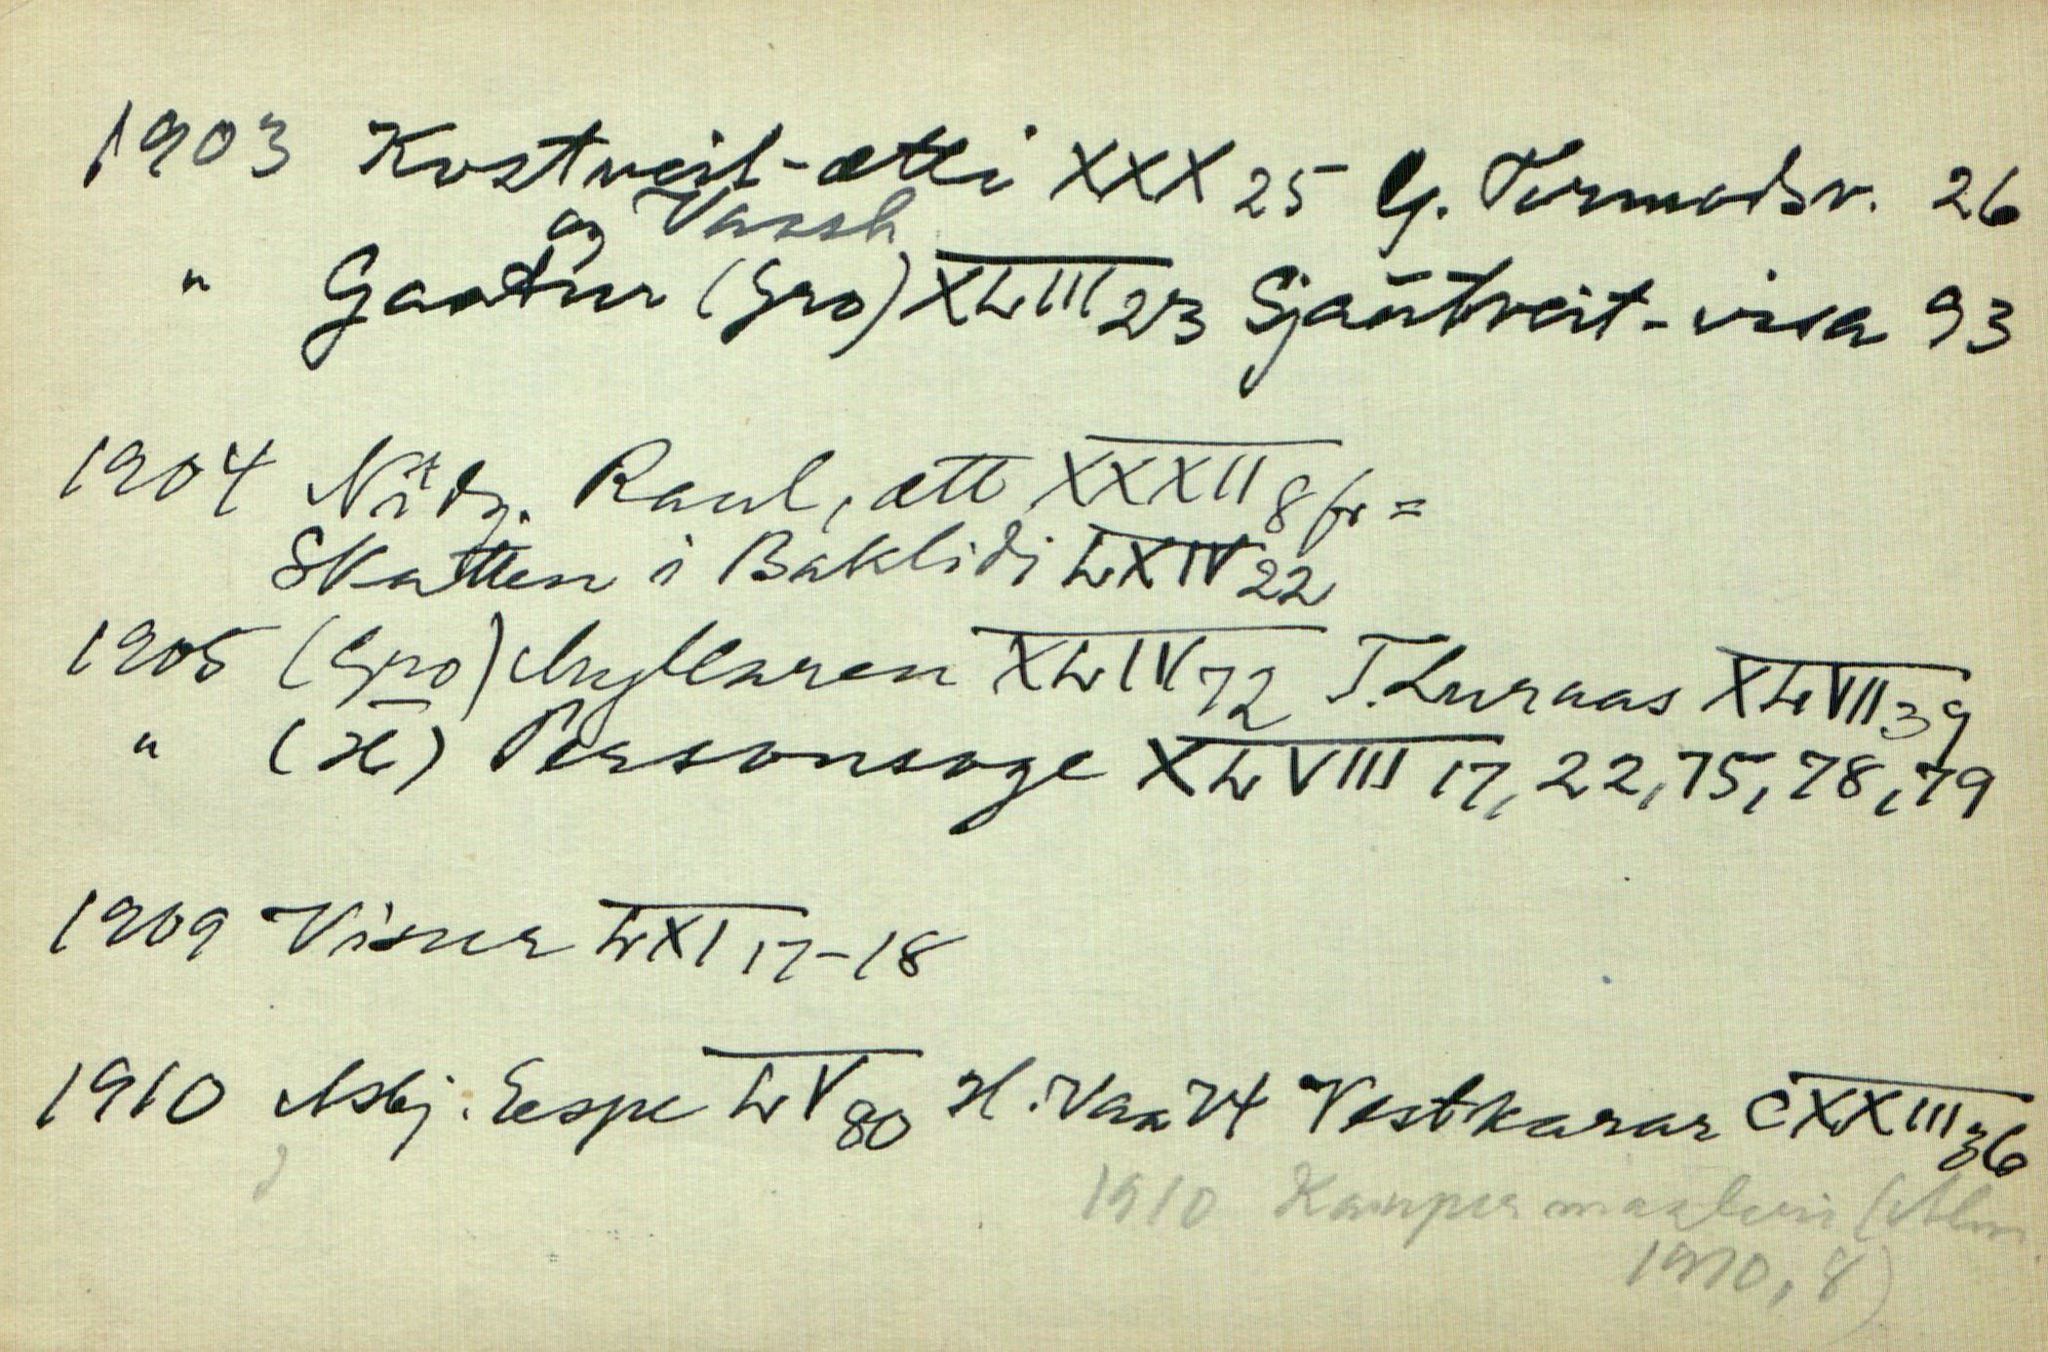 1903 Kostveit-ætti XXX 25 G. Tormodsv. 26
og Vassh
" Gaatur (Gro) XLIII 23 Sjåntveit-visa 93
1904 Raul, ætt XXXII 8 fr =
Skatten i Baklidi LXIV 22
1905 (Gro) Myllaren XLIV 72 T. Luraas XLVII 39
" (H) Personsoge XLVIII 17, 22, 75, 78, 79
1909 Visur LXI 17-18
1910 Asbj. Espe LV 80 H. Vaa 74 Vestkarar CXXIII 36
1910 Kampen maalvin
1910, 8)